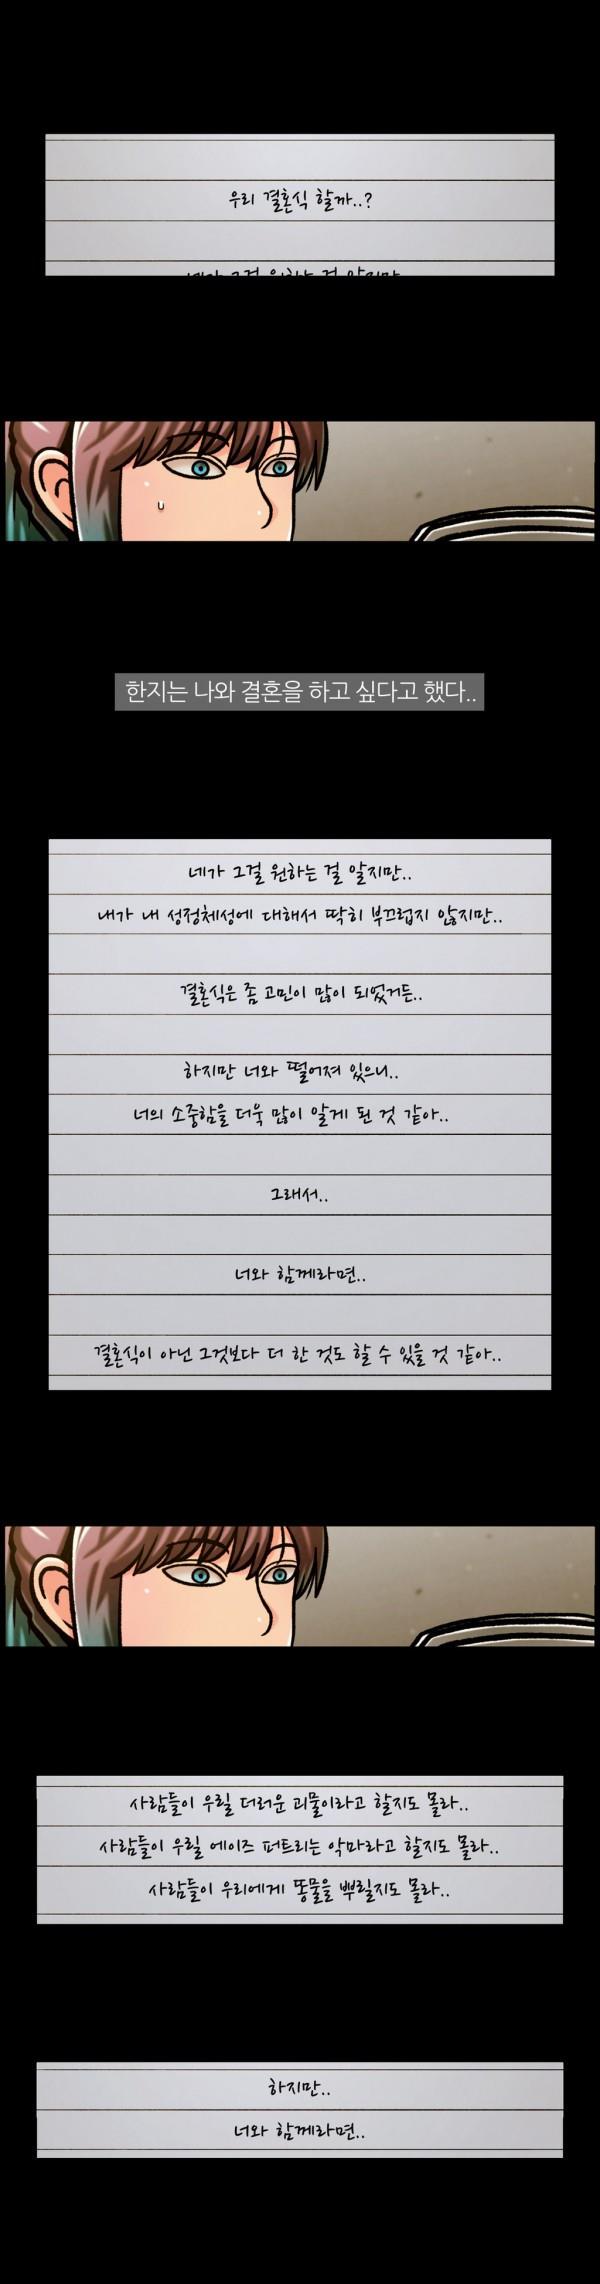 우리 결혼식 할까..?
네가 그걸 원하는 걸 알지만
한지는 나와 결혼을 하고 싶다고 했다..
네가 그걸 원하는 걸 알지만..
내가 내 성정체성에 대해서 딱히 부끄럽지 않지만..
결혼식은 좀 고민이 많이 되었거든..
하지만 너와 떨어져 있으니..
너의 소중함을 더욱 많이 알게 된 것 같아..
그래서..
너와 함께라면..
결혼식이 아닌 그것보다 더 한 것도 할 수 있을 것 같아..
사람들이 우릴 더러운 괴물이라고 할지도 몰라..
사람들이 우릴 에이즈 퍼트리는 악마라고 할지도 몰라..
사람들이 우리에게 똥물을 뿌릴지도 몰라..
하지만..
너와 함께라면..